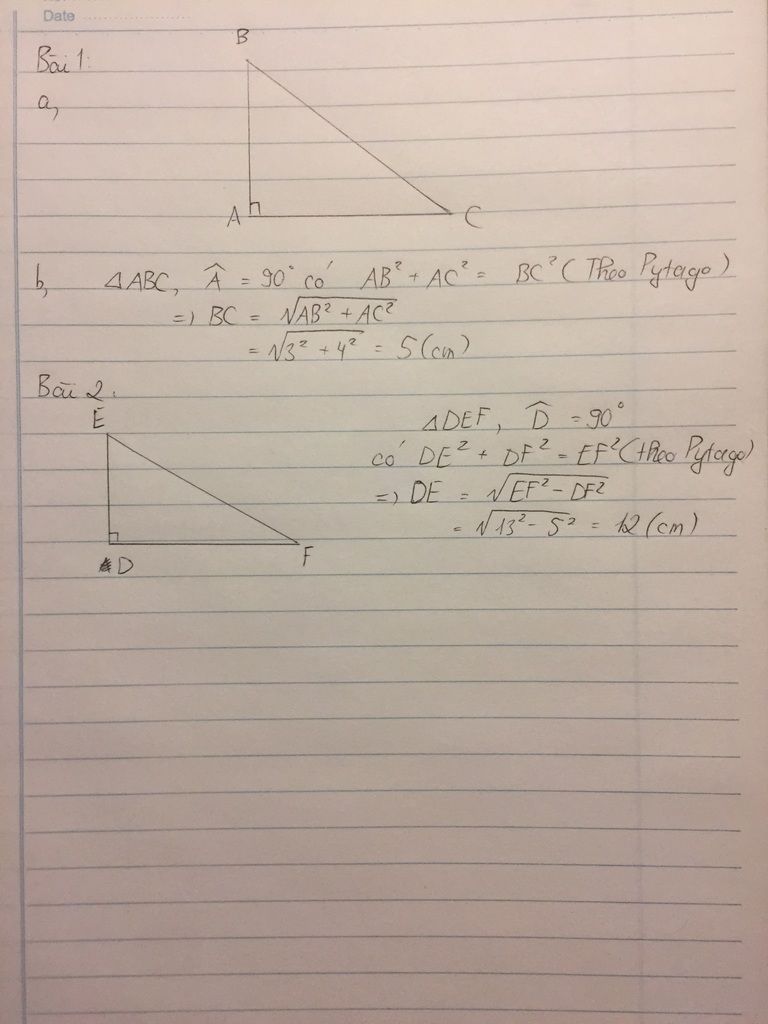 Date
Bài 1:
a,
B
A
C
b, △ABC, Â = 90° có AB² + AC² = BC² (Theo Pytago)
=> BC = √AB² + AC²
= √3² + 4² = 5 (cm)
Bài 2.
E
D
F
△DEF, D̂ = 90°
có DE² + DF² = EF² (theo Pytago)
=> DE = √EF² - DF²
= √13² - 5² = 12 (cm)